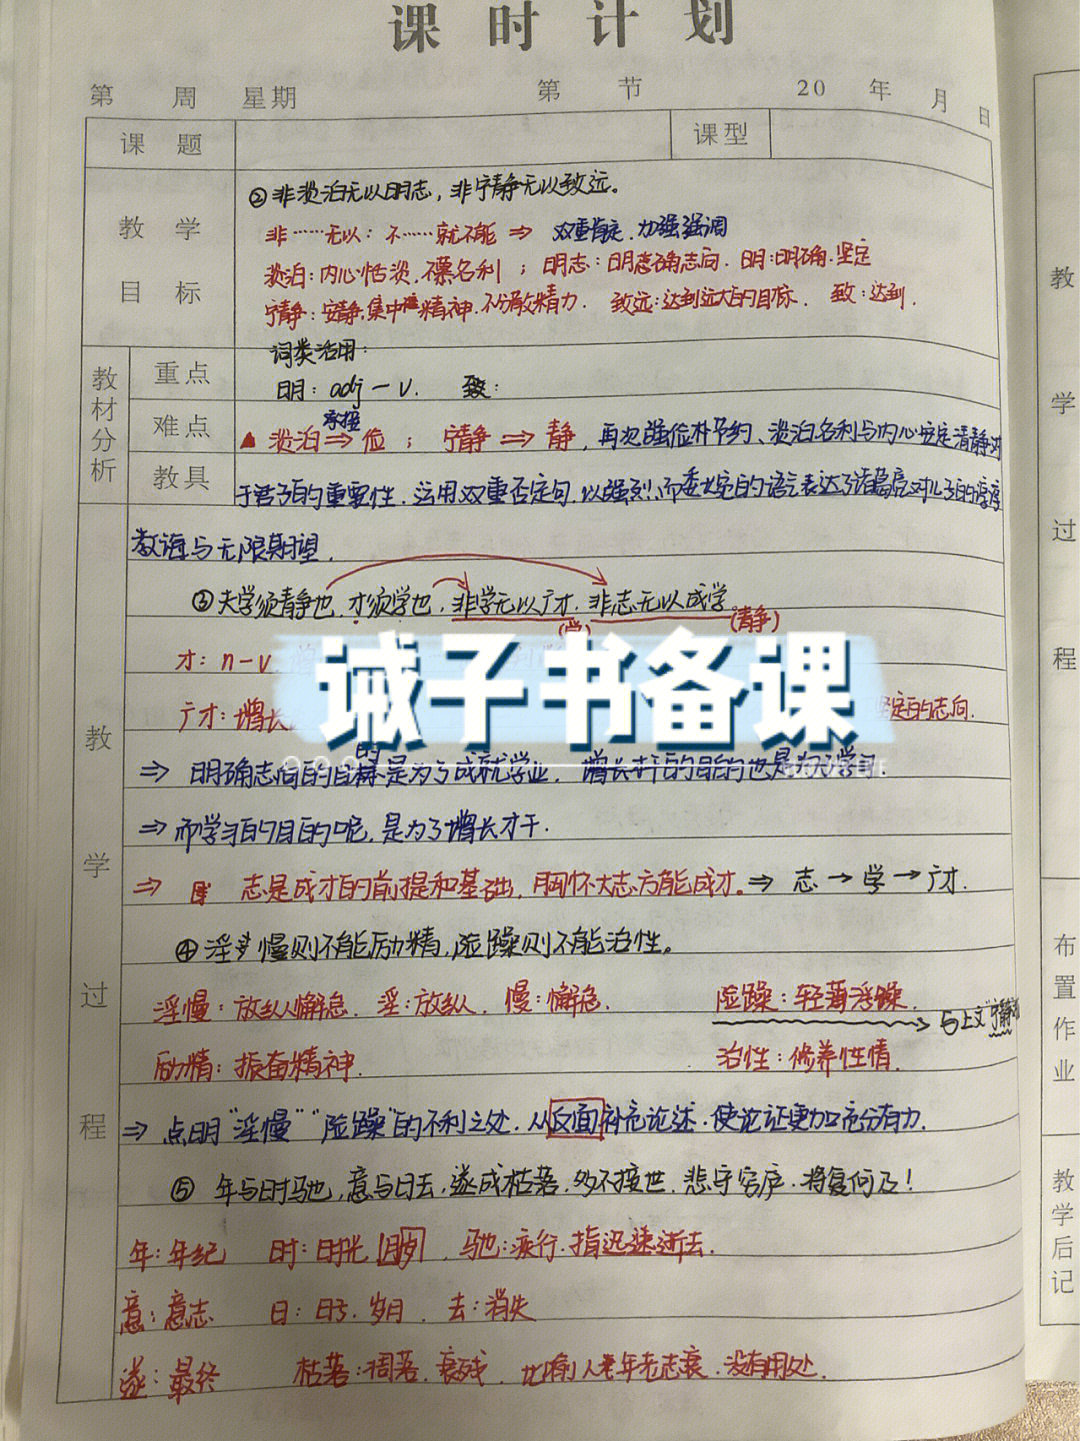 课时计划
第 周 星期 第 节 20 年 月 日
课题 课型
教学目标
②非淡泊无以明志，非宁静无以致远。
非……无以：不……就不能 ⇒ 双重肯定．加强强调
淡泊：内心恬淡．不慕名利；明志：明确志向．明：明确．坚定
宁静：安静．集中精神．不分散精力． 致远：达到远大的目标． 致：达到．
词类活用：
教材分析
重点
明：adj — v． 致：
难点
承接
▲ 淡泊 ⇒ 俭； 宁静 ⇒ 静，再次强俭朴节约、淡泊名利与内心安定清静对
教具
于君子的重要性．运用双重否定句．以强烈．而委婉的语气表达了诸葛亮对儿子的谆谆
教诲与无限期望．
③夫学须静也，才须学也，非学无以广才．非志无以成学。
(学) (静)
才：n-v
诫子书备课
广才：增长 坚定的志向．
教学过程
⇒ 明确志向的目的是为了成就学业． 增长才干的目的也是为了学习．
⇒ 而学习的目的呢．是为了增长才干．
⇒ 志是成才的前提和基础，胸怀大志方能成才。⇒ 志→学→广才．
④淫慢则不能励精，险躁则不能治性。
淫慢：放纵懈怠． 淫：放纵． 慢：懈怠． 险躁：轻薄浮躁．
与上文“宁静
励精：振奋精神． 治性：修养性情．
⇒ 点明“淫慢”“险躁”的不利之处．从反面补充论述．使论证更加充分有力．
⑤ 年与时驰，意与日去，遂成枯落．多不接世．悲守穷庐．将复何及！
年：年纪 时：时光 驰：疾行．指迅速逝去．
意：意志 日：时．岁月． 去：消失
遂：最终 枯落：凋落．衰残． 比喻人年老志衰．没有用处．
教学过程
布置作业
教学后记